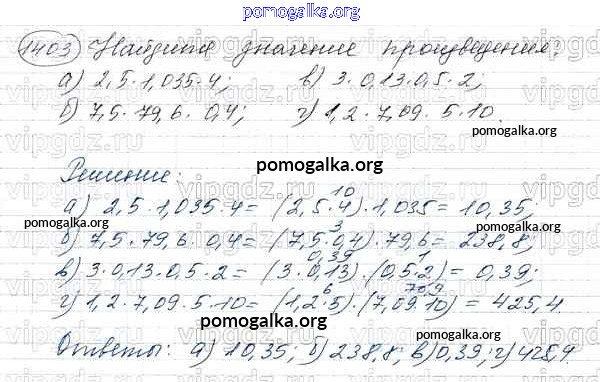 pomogalka.org
1403 Найдите значение произведения:
а) 2,5·1,035·4; в) 3·0,13·0,5·2;
б) 7,5·79,6·0,4; г) 1,2·7,09·5·10.
pomogalka.org
Решение: pomogalka.org
10
а) 2,5·1,035·4= (2,5·4)·1,035= 10,35;
pomogalka.org pomogalka.org
3
б) 7,5·79,6·0,4= (7,5·0,4)·79,6= 238,8;
0,39 1
в) 3·0,13·0,5·2= (3·0,13)·(0,5·2)= 0,39;
6 70,9
г) 1,2·7,09·5·10= (1,2·5)·(7,09·10)= 425,4.
pomogalka.org pomogalka.org
Ответы: а) 10,35; б) 238,8; в) 0,39; г) 425,4.
pomogalka.org